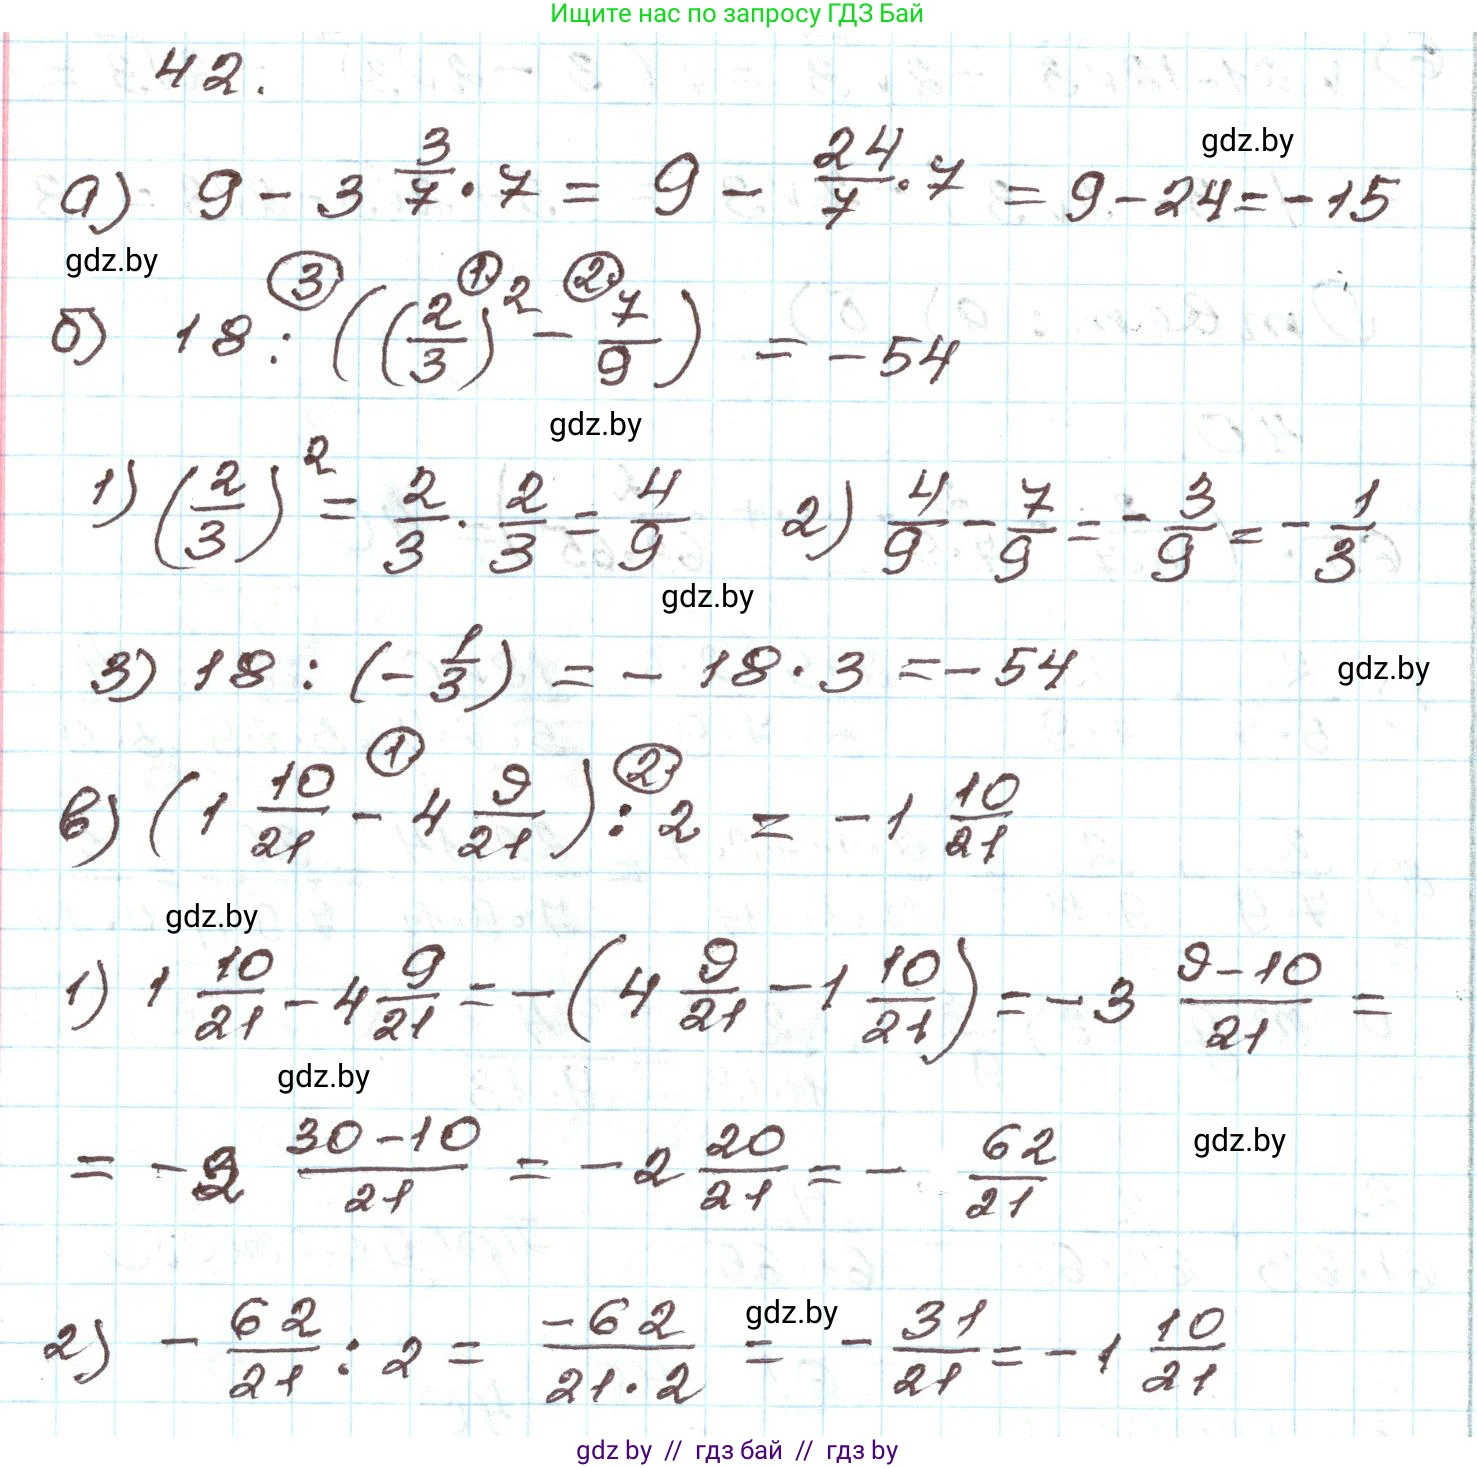 Ищите нас по запросу ГДЗ Бай
42.
gdz.by
а) 9 - 3 3/7 · 7 = 9 - 24/7 · 7 = 9 - 24 = - 15
gdz.by
3 1 2
б) 18 : ((2/3)² - 7/9) = - 54
gdz.by
1) (2/3)² = 2/3 · 2/3 = 4/9 2) 4/9 - 7/9 = - 3/9 = - 1/3
gdz.by
3) 18 : (- 1/3) = - 18 · 3 = - 54
gdz.by
1 2
в) (1 10/21 - 4 9/21) : 2 = - 1 10/21
gdz.by
1) 1 10/21 - 4 9/21 = - (4 9/21 - 1 10/21) = - 3 9-10/21 =
gdz.by
= - 2 30-10/21 = - 2 20/21 = - 62/21
gdz.by
gdz.by
2) - 62/21 : 2 = -62/21·2 = - 31/21 = - 1 10/21
gdz by // гдз бай // гдз by